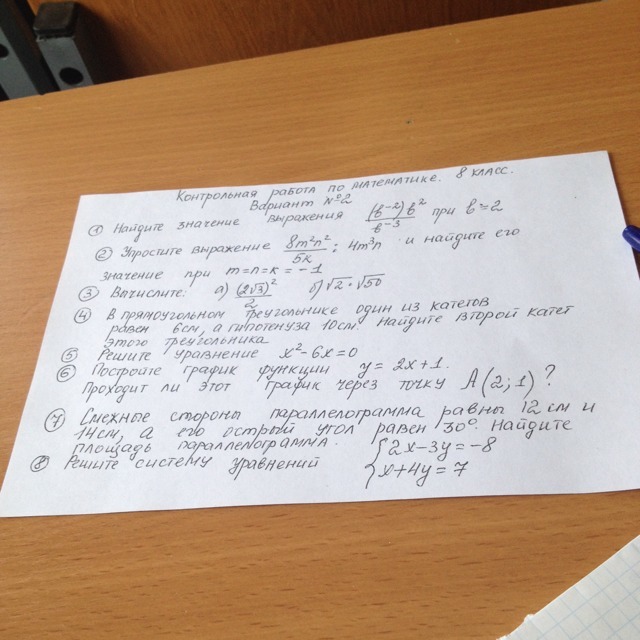 Контрольная работа по математике. 8 класс.
Вариант №2
① Найдите значение выражения (в⁻²)в²/в⁻³ при в=2
② Упростите выражение 8m²n²/5k : 4m³n и найдите его
значение при m=n=k=-1
③ Вычислите: а) (2√3)²/2 б) √2 · √50
④ В прямоугольном треугольнике один из катетов
равен 6см, а гипотенуза 10см. Найдите второй катет
этого треугольника
⑤ Решите уравнение x²-6x=0
⑥ Постройте график функции y=2x+1.
Проходит ли этот график через точку А(2;1)?
⑦ Смежные стороны параллелограмма равны 12 см и
14см, а его острый угол равен 30°. Найдите
площадь параллелограмма.
⑧ Решите систему уравнений {2x-3y=-8
{x+4y=7